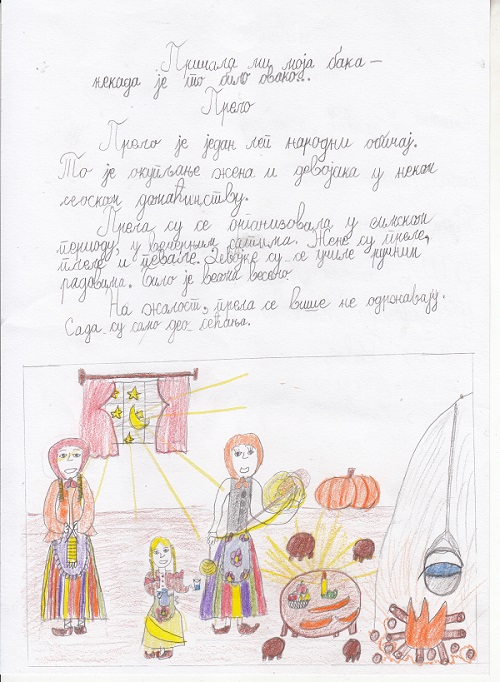 Причала ми моја бака –
некада је то било овако...
Прело
Прело је један леп народни обичај.
То је окупљање жена и девојака у неком
сеоском домаћинству.
Прела су се организовала у зимском
периоду, у вечерњим сатима. Жене су преле,
плеле и певале. Девојке су се училе ручним
радовима. Било је веома весело.
На жалост, прела се више не одржавају.
Сада су само део сећања.